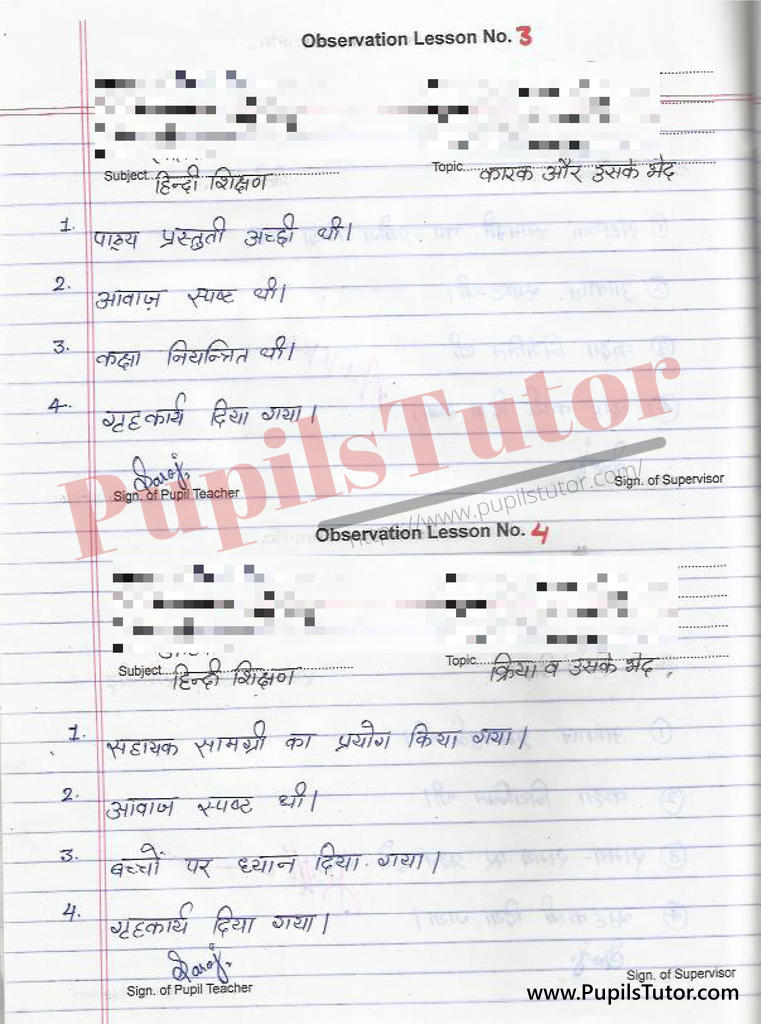 Observation Lesson No. 3
Subject हिन्दी शिक्षण Topic कारक और उसके भेद
1. पाठ्य प्रस्तुती अच्छी थी।
2. आवाज़ स्पष्ट थी।
3. कक्षा नियन्त्रित थी।
4. गृहकार्य दिया गया।
Saroj.
Sign. of Pupil Teacher Sign. of Supervisor
PupilsTutor
https://www.pupilstutor.com/
Observation Lesson No. 4
Subject हिन्दी शिक्षण Topic क्रिया व उसके भेद.
1. सहायक सामग्री का प्रयोग किया गया।
2. आवाज स्पष्ट थी।
3. बच्चों पर ध्यान दिया गया।
4. गृहकार्य दिया गया।
Saroj.
Sign. of Pupil Teacher Sign. of Supervisor
www.PupilsTutor.com